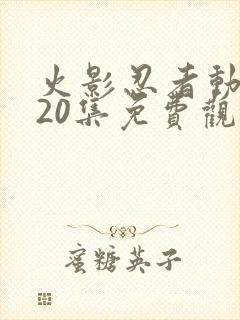 火影忍者動
20集免費觀
蜜糖英子